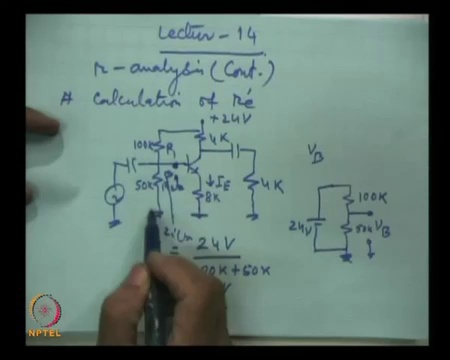 Lecture - 14
r-analysis (Cont.)
* Calculation of ŕe
+24V
100K R1 4K
VB
50K
↓ IE
8K
4K
24V
100K
50K VB
= 24V
+ 50K
NPTEL